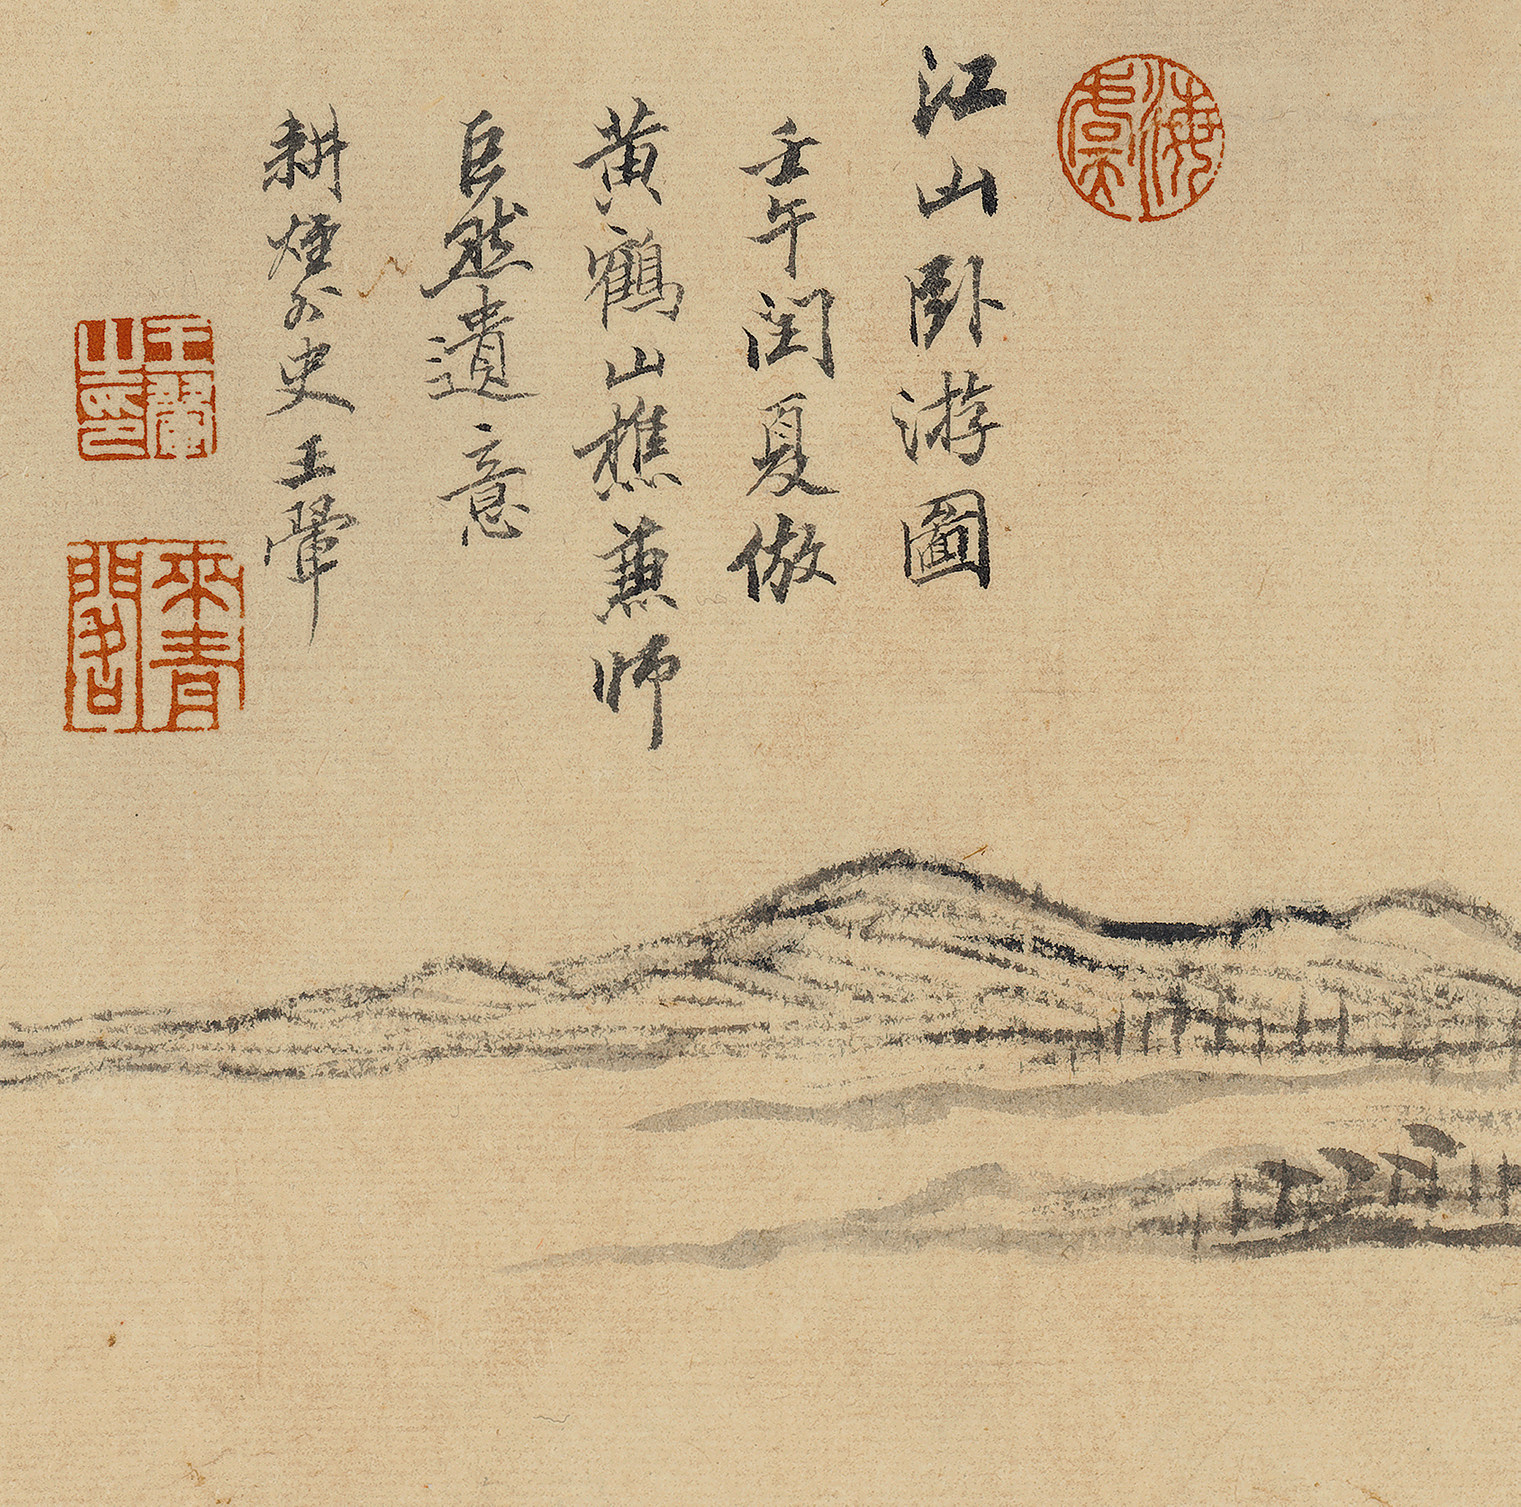 海虞
江山卧游圖
壬午閏夏倣
黃鶴山樵兼師
巨然遺意
耕煙外史王翬
王翬之印
來青閣